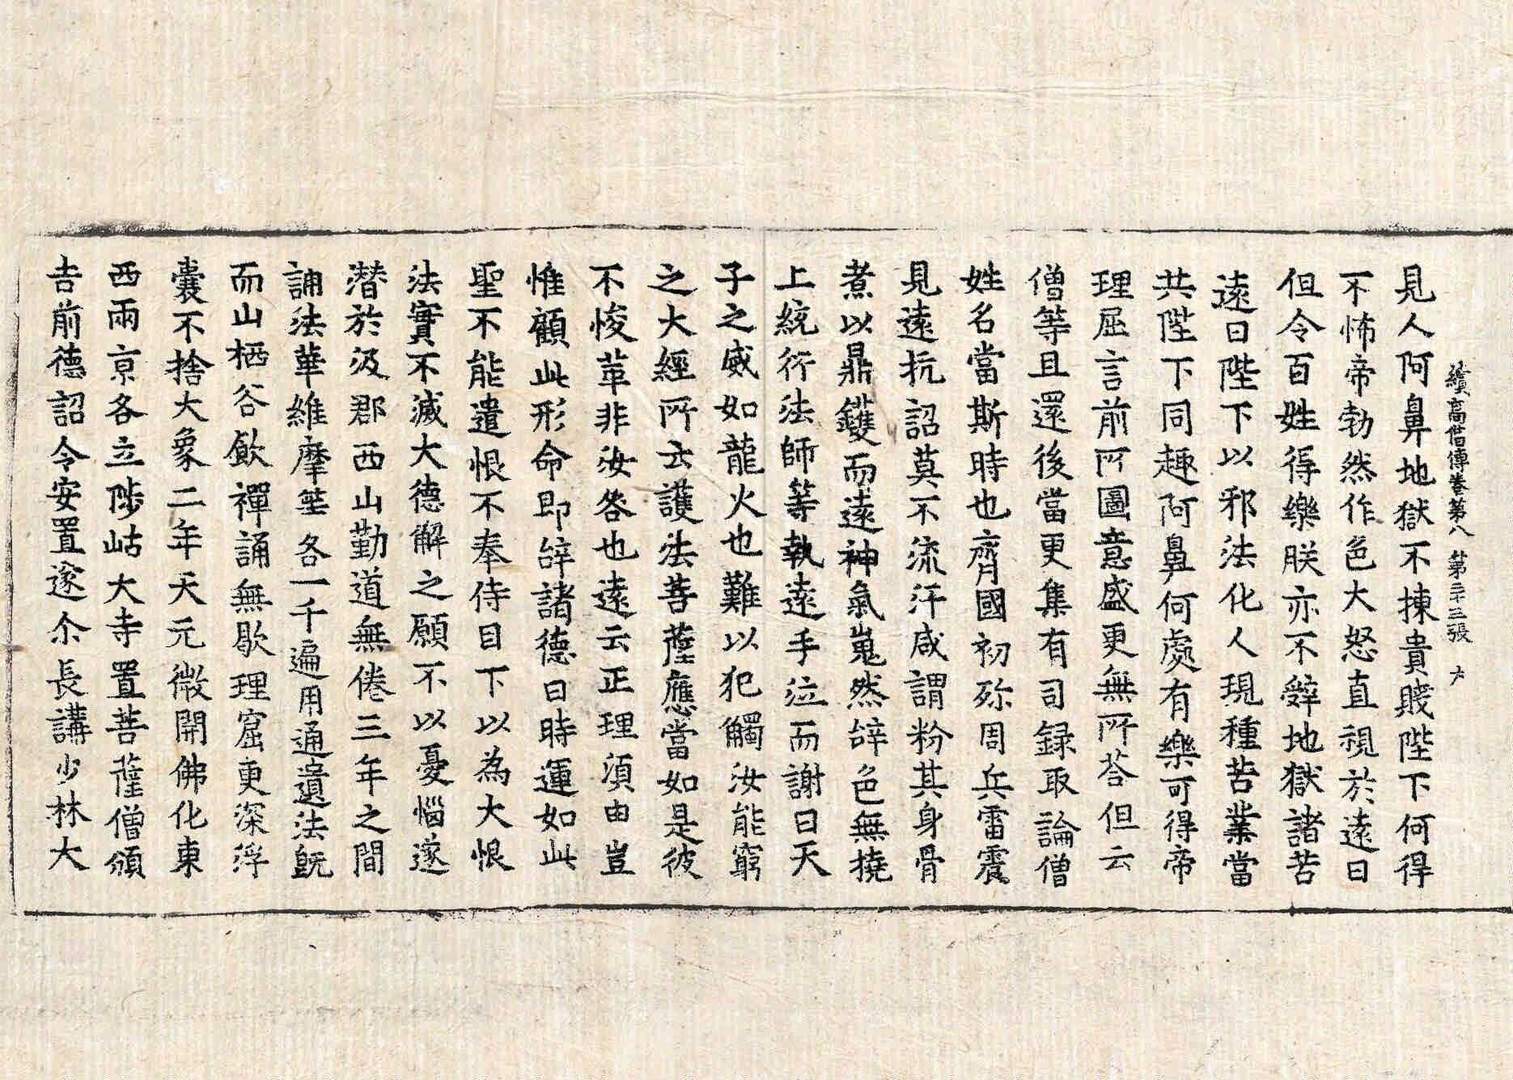 續高僧傳卷第八 第二十三張 六
見人阿鼻地獄不揀貴賤陛下何得
不怖帝勃然作色大怒直視於遠曰
但令百姓得樂朕亦不辤地獄諸苦
遠曰陛下以邪法化人現種苦業當
共陛下同趣阿鼻何處有樂可得帝
理屈言前所圖意盛更無所荅但云
僧等且還後當更集有司録取論僧
姓名當斯時也齊國初殄周兵雷震
見遠抗詔莫不流汗咸謂粉其身骨
煮以鼎鑊而遠神氣嵬然辝色無撓
上統衍法師等執遠手泣而謝曰天
子之威如龍火也難以犯觸汝能窮
之大經所云護法菩薩應當如是彼
不悛革非汝咎也遠云正理須由豈
惟顧此形命即辝諸德曰時運如此
聖不能遣恨不奉侍目下以為大恨
法實不滅大德解之願不以憂惱遂
潛於汲郡西山勤道無倦三年之間
誦法華維摩等各一千遍用通遺法既
而山栖谷飲禪誦無歇理窟更深浮
囊不捨大象二年天元微開佛化東
西兩京各立陟岵大寺置菩薩僧頒
吉前德詔令安置遂尒長講少林大